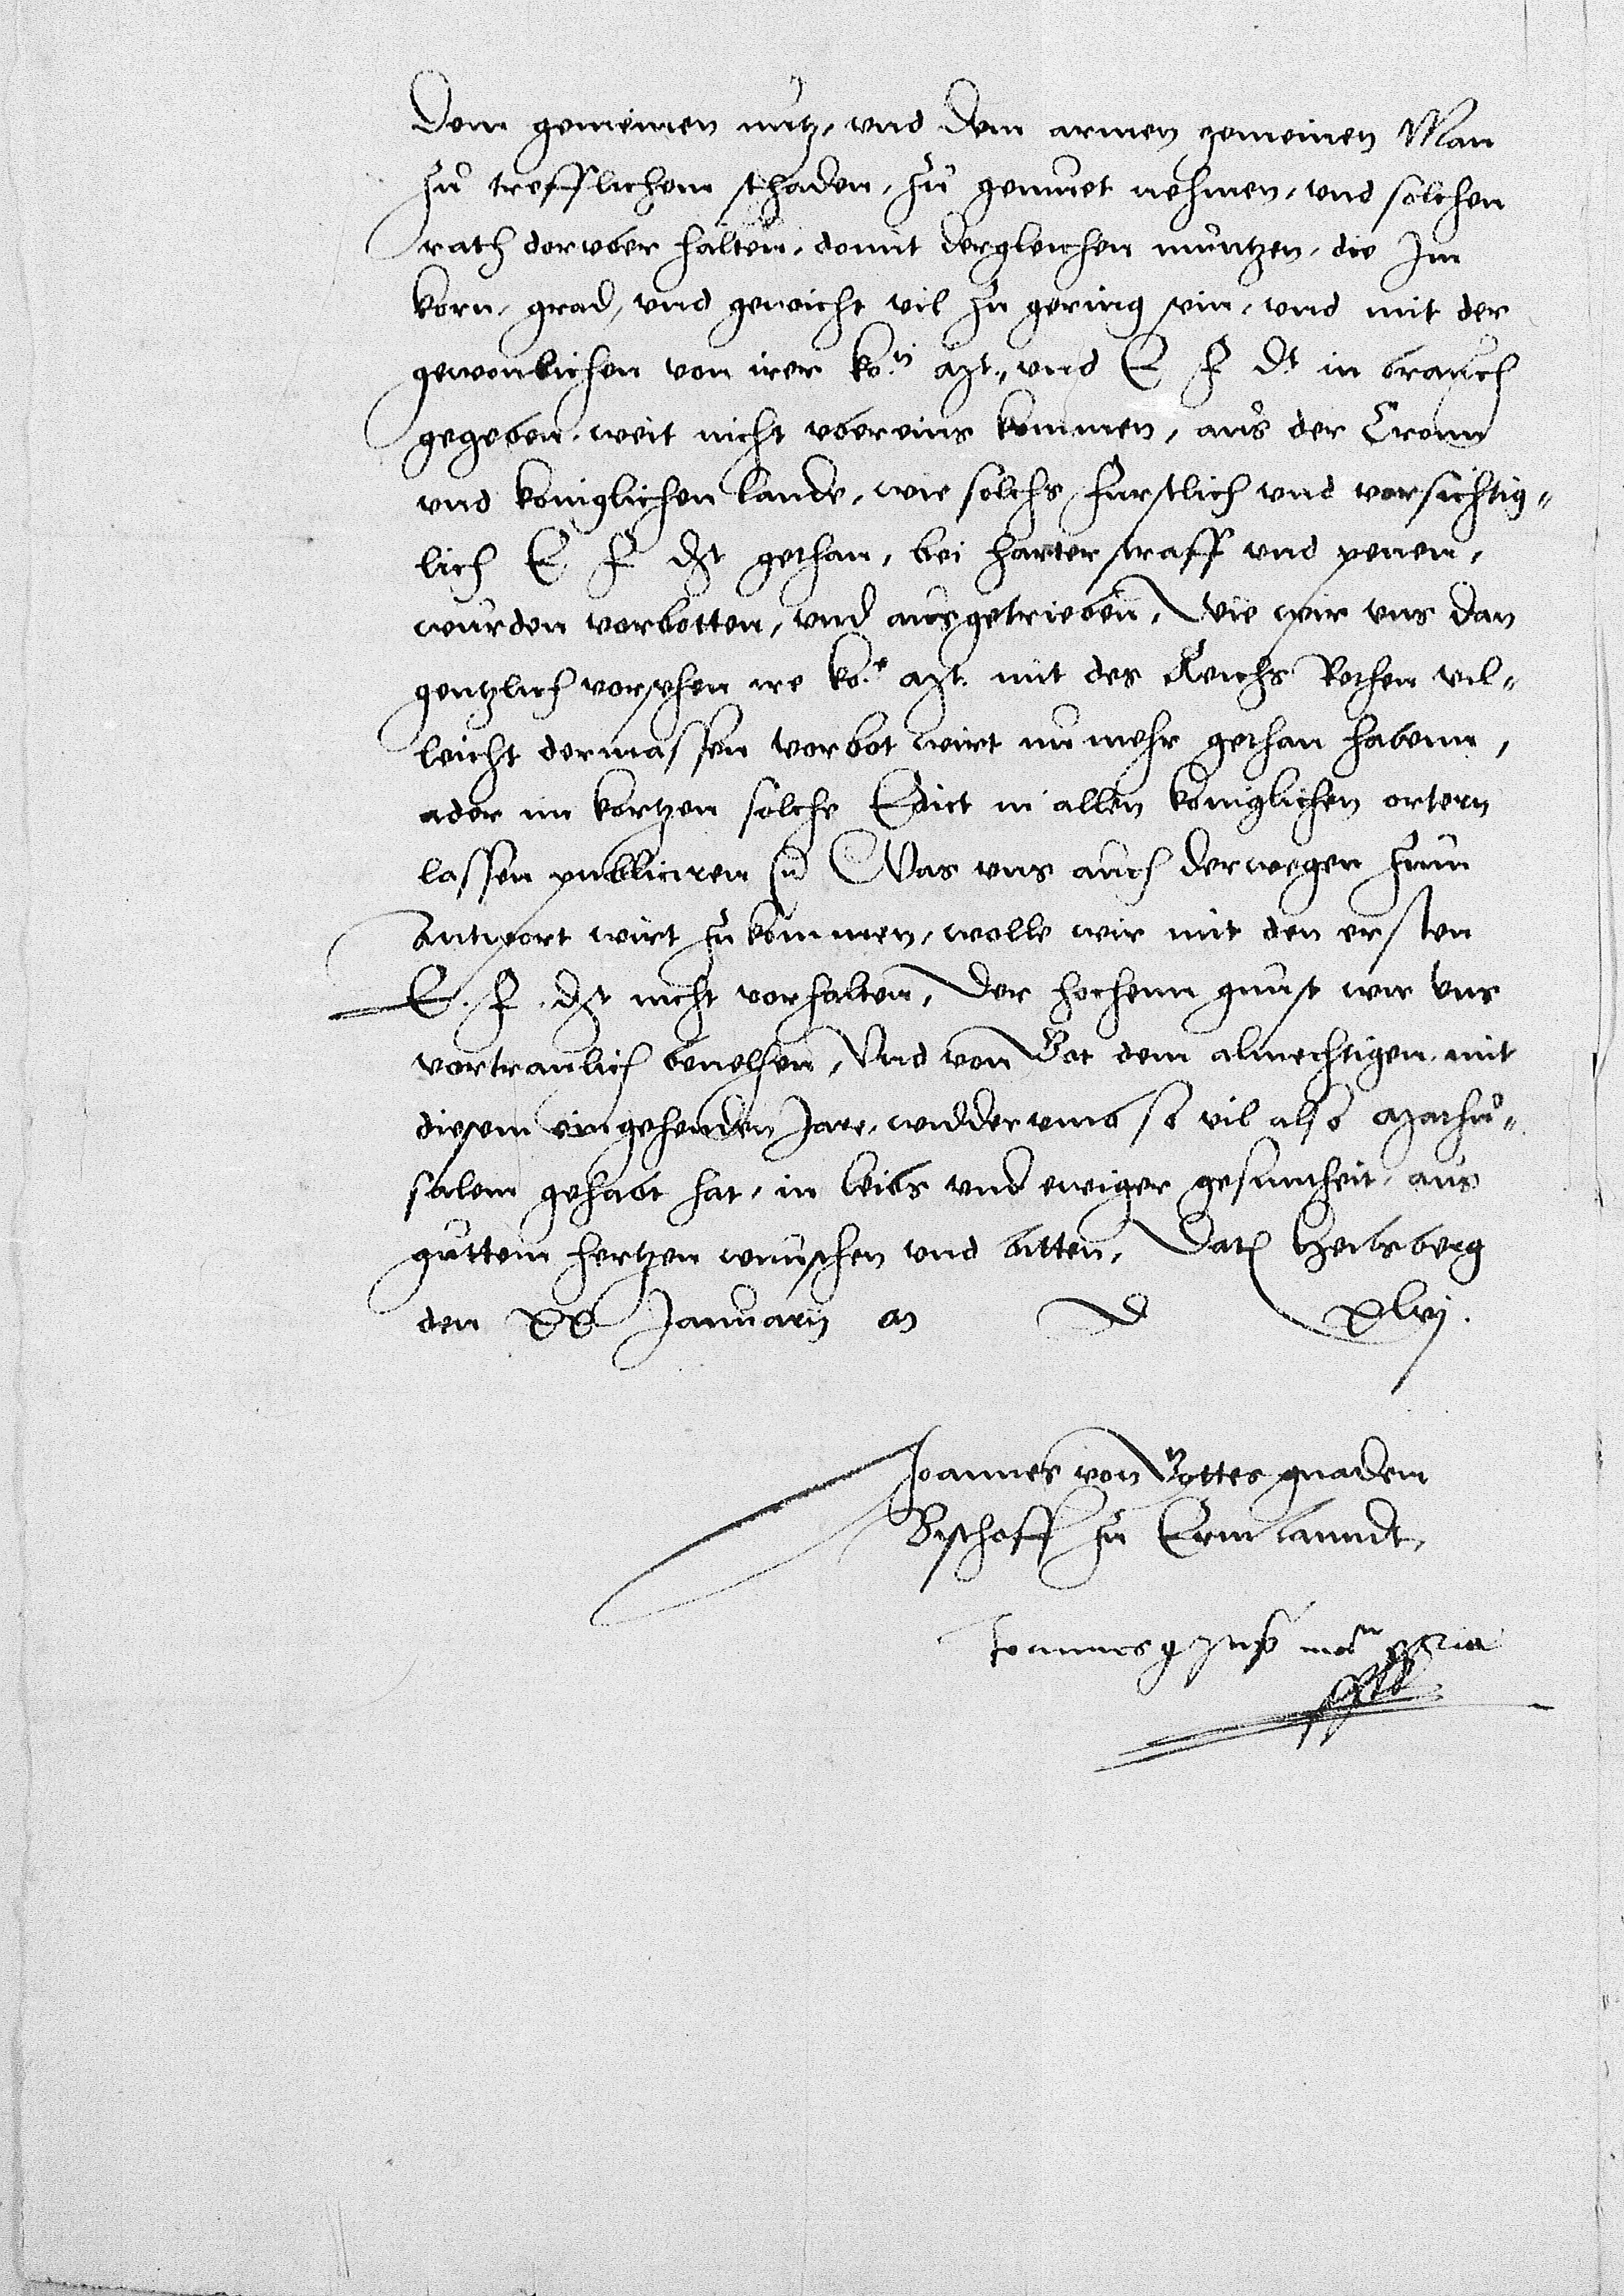 Dem gemeinen nutz, und dem armen gemeinen Man
zu trefflichem schaden, zu gemuet nehmen, und solchen
rath doruber halten, domit dergleichen muntzen, die Im
korn, grad, und gewicht vil zu gering sein, und mit der
gewonlichen von irer ko.n Mt., und E F Dt in brauch
gegeben, weit nicht ubereins kommen, aus der Cronn
und koniglichen lande, wie solchs furstlich und vorsichtig„
lich E F Dt gethan, bei harter straff und penen,
wurden vorbotten, und ausgetrieben, Wie wir uns dan
gentzlich vorsehen ire ko.e Mt. mit des Reichs Rethen vil„
leicht dermassen vorbot wirt nu mehr gethan habenn,
ader im kortzen solche Edict in allen koniglichen ortern
lassen publiciren Was uns auch derwegen zum
Antwort wirt zukommen, wolle wir mit den ersten
E. F. Dt nicht vorhalten, Der hochenn gunst wir uns
vortraulich bevelhen, Und von Got dem almechtigen mit
diesem eingehenden Jare, widderumb so vil also Mathu„
salem gehabt hat, in leibs und ewiger gesuntheit, aus
guttem hertzen wunschen und bitten, Dat Heilsberg
den XX Januarij M D XLvj.
Joannes von Gottes gnaden
Bischoff zu Ermlanndt,
Joannes manu ppria